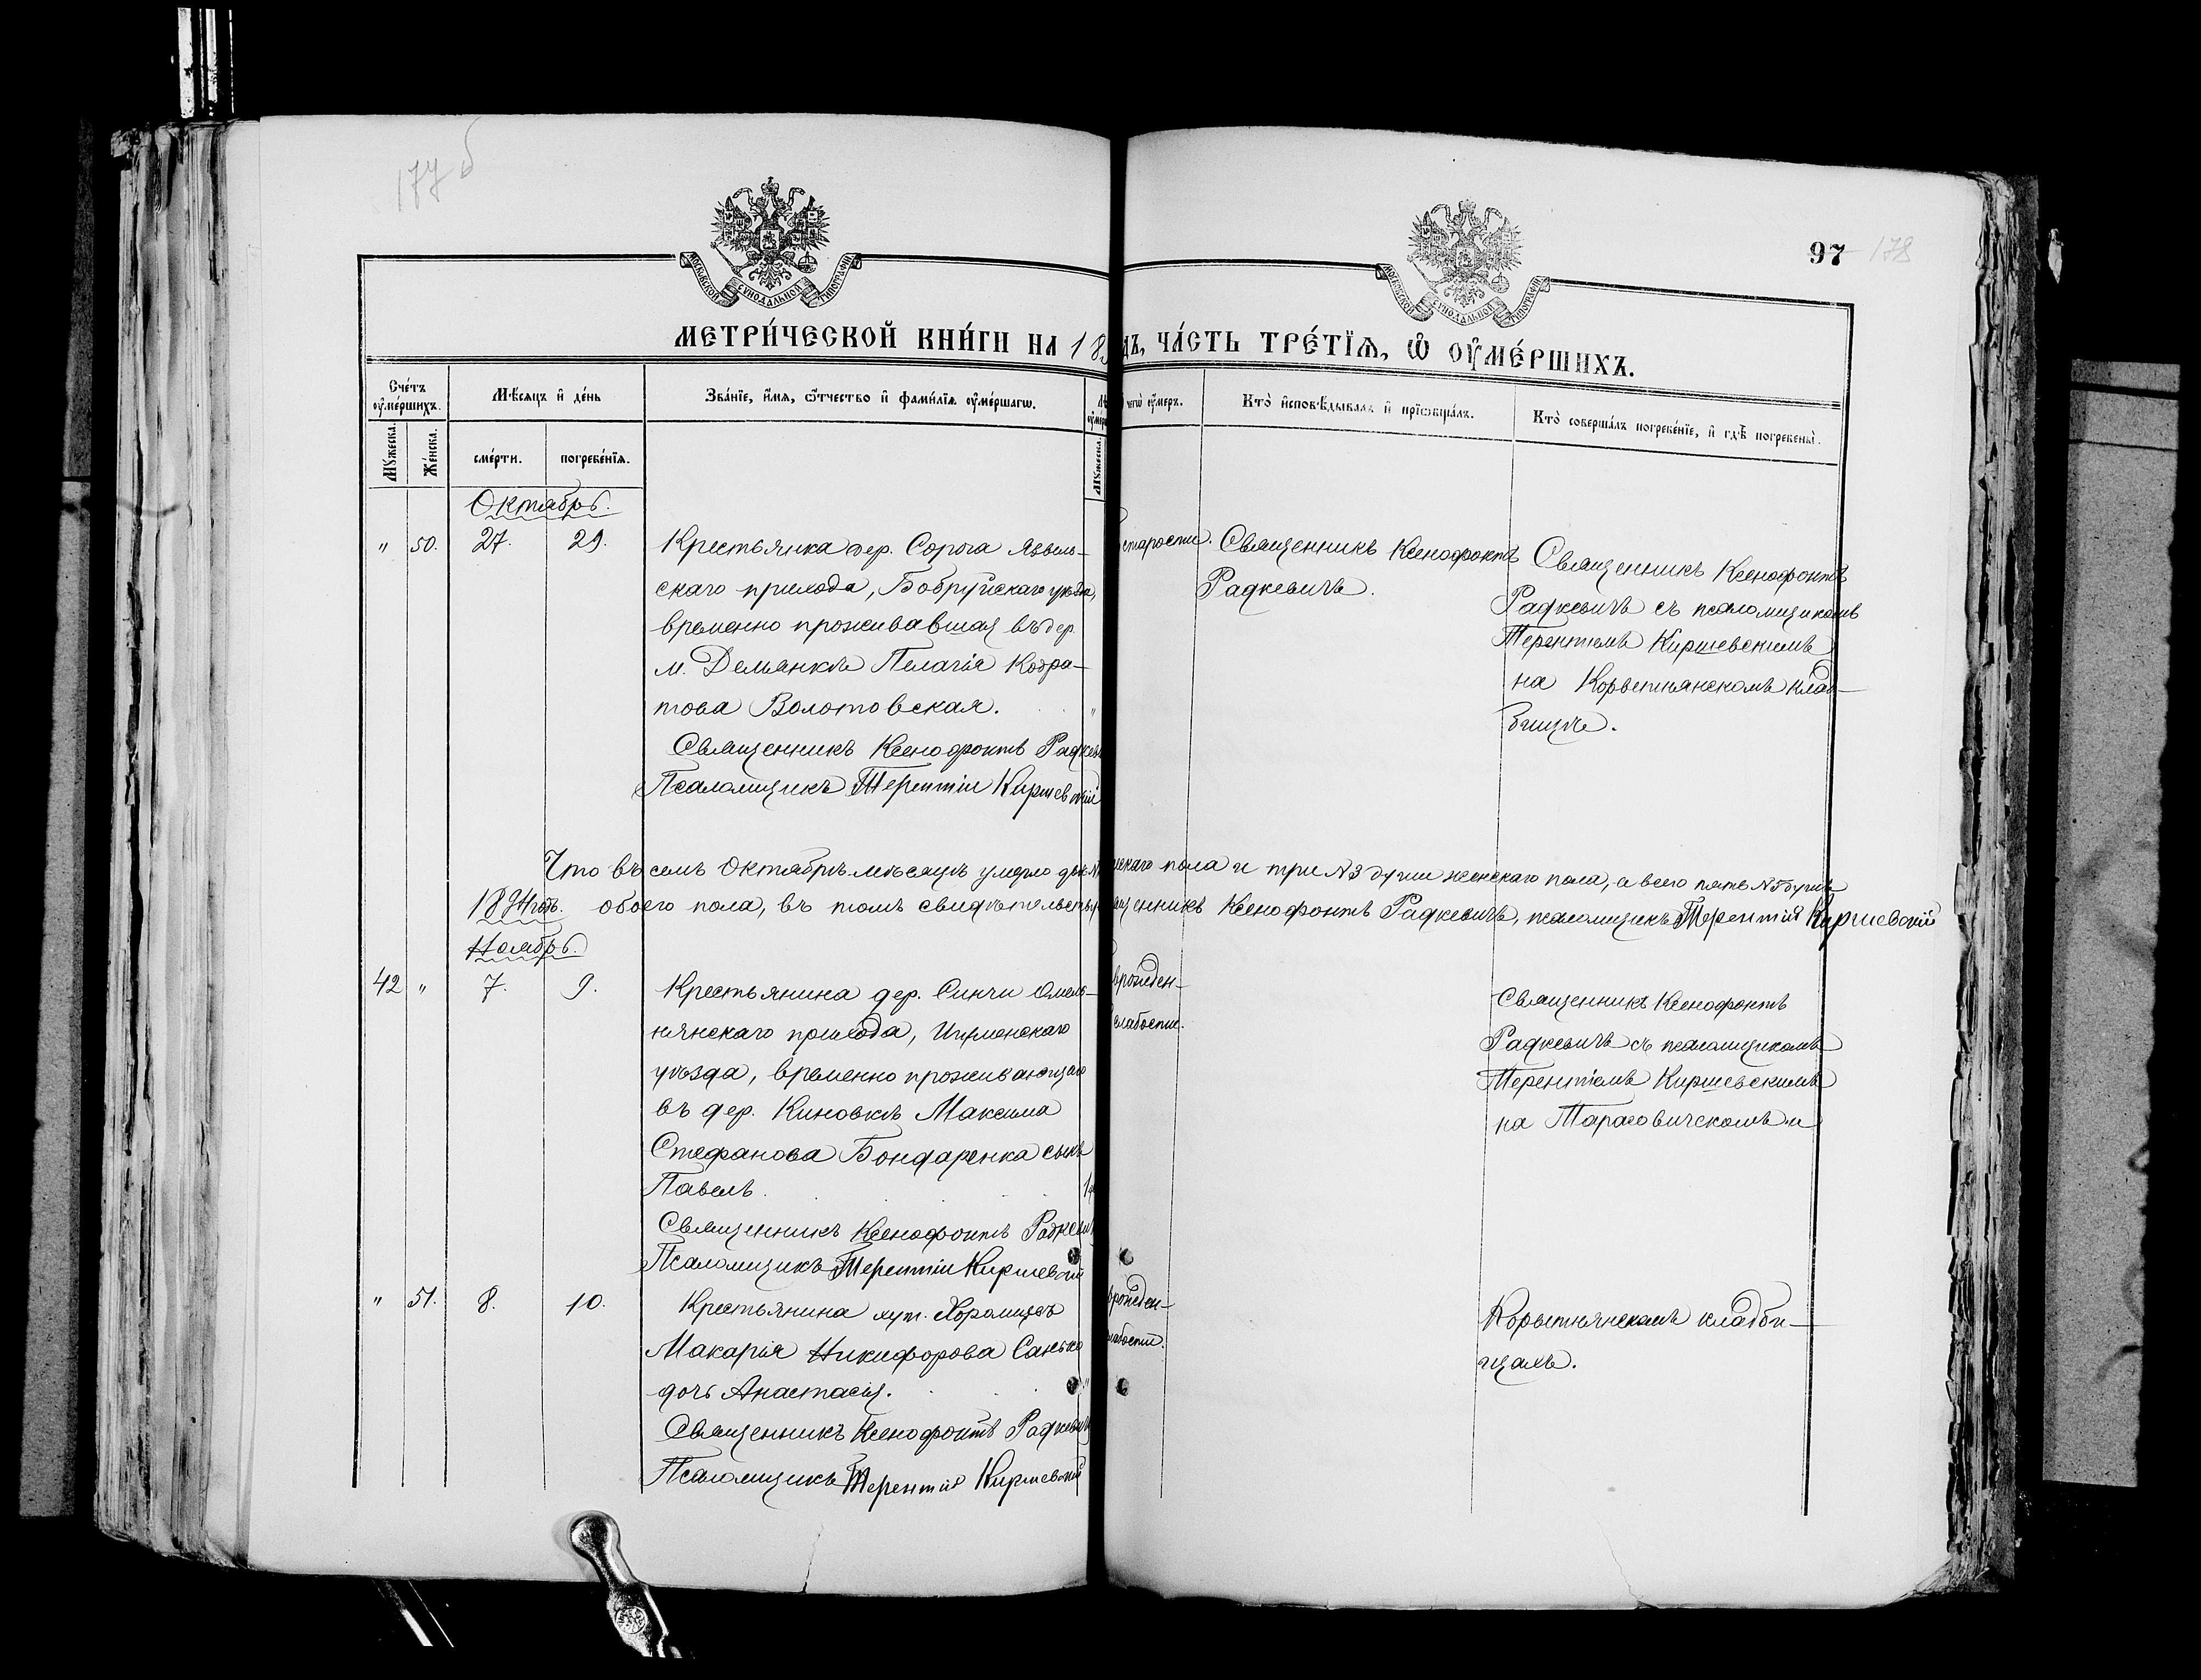 177 б
97 178
МОСКОВСКОЙ СѴНОДАЛЬНОЙ ТИПОГРАФІИ
МОСКОВСКОЙ СѴНОДАЛЬНОЙ ТИПОГРАФІИ
МЕТРИ́ЧЕСКОЙ КНИ́ГИ НА 18 дъ, ЧА́СТЬ ТРЕ́ТІѦ, Ѿ ОУМЕ́РШИХЪ.
Сче́тъ оуме́ршихъ.
Мѣ́сяцъ и де́нь
Зва́ніе, и́мя, ѻ́тчество и фами́лїѧ оуме́ршагѡ.
чегѡ̀ оу́меръ.
Кто̀ и҆сповѣ́дывалъ и҆ прїѡбща́лъ.
Кто̀ соверша́лъ погребе́нїе, и҆ гдѣ̀ погребены̀.
Мꙋ́жеска.
Же́нска.
сме́рти.
погребе́нїѧ.
Мꙋ́жеска.
Октябрь.
" 50. 27. 29. Крестьянка дер. Сорога Язвель-
скаго прихода, Бобруйскаго уѣзда,
временно проживавшая въ дер.
м. Демьянкѣ Пелагія Кодра-
това Волотовская. "
Священникъ Ксенофонтъ Радкев
Псаломщикъ Терентій Киршевскій
старости.
Священникъ Ксенофонтъ
Радкевичъ.
Священникъ Ксенофонтъ
Радкевичъ съ псаломщикомъ
Терентіемъ Киршевскимъ
на Корветнянскомъ клад-
бищѣ.
Что въ семъ Октябрѣ мѣсяцѣ умерло двѣ скаго пола и три №3 души женскаго пола, а всего пять №5 душъ
1894 годъ. обоего пола, въ томъ свидѣтельств щенникъ Ксенофонтъ Радкевичъ, псаломщикъ Терентій Киршевскій
Ноябрь.
42 " 7. 9. Крестьянина дер. Синчи Омель-
нянскаго прихода, Игуменскаго
уѣзда, временно проживающаго
въ дер. Киновкѣ Максима
Стефанова Бондаренка сынъ
Павелъ.
Священникъ Ксенофонтъ Радкевич
Псаломщикъ Терентій Киршевскій
врожден-
слабости.
Священникъ Ксенофонтъ
Радкевичъ съ псаломщикомъ
Терентіемъ Киршевскимъ
на Тарасовичскомъ и
" 51. 8. 10. Крестьянина хут. Хоромцеъ
Макарія Никифорова Санько
дочь Анастасія. "
Священникъ Ксенофонтъ Радкевич
Псаломщикъ Терентій Киршевскій
врожден-
лабости.
Корветнянскомъ кладби-
щахъ.